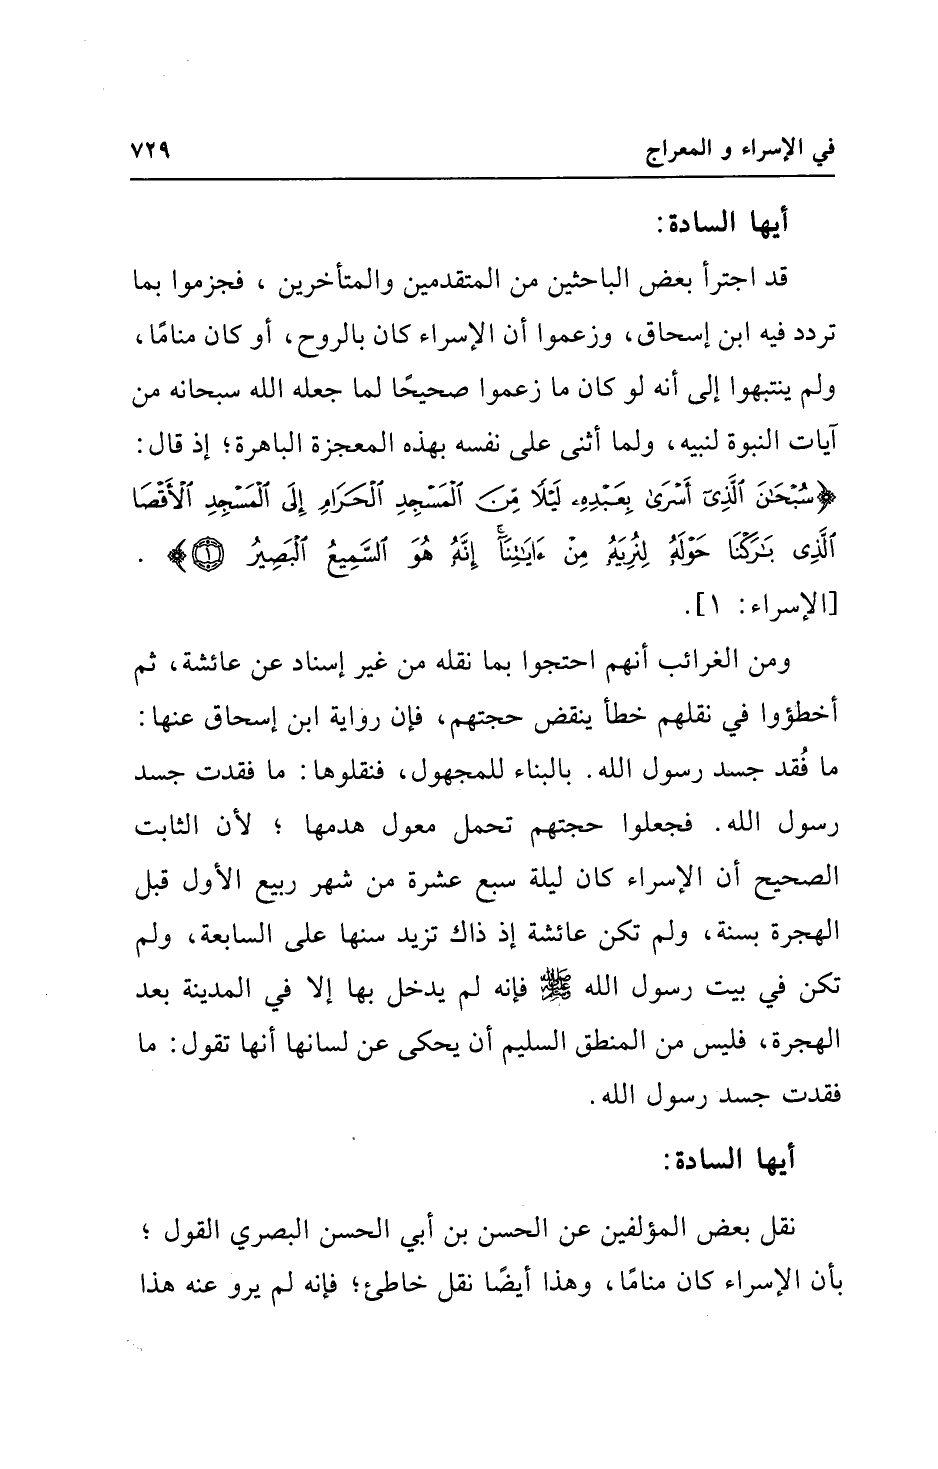 في الإسراء و المعراج ٧٢٩
أيها السادة:
قد اجترأ بعض الباحثين من المتقدمين والمتأخرين ، فجزموا بما
تردد فيه ابن إسحاق، وزعموا أن الإسراء كان بالروح، أو كان منامًا،
ولم ينتبهوا إلى أنه لو كان ما زعموا صحيحًا لما جعله الله سبحانه من
آيات النبوة لنبيه، ولما أثنى على نفسه بهذه المعجزة الباهرة؛ إذ قال:
﴿سُبْحَٰنَ ٱلَّذِىٓ أَسْرَىٰ بِعَبْدِهِۦ لَيْلًا مِّنَ ٱلْمَسْجِدِ ٱلْحَرَامِ إِلَى ٱلْمَسْجِدِ ٱلْأَقْصَا
ٱلَّذِى بَٰرَكْنَا حَوْلَهُۥ لِنُرِيَهُۥ مِنْ ءَايَٰتِنَآ ۚ إِنَّهُۥ هُوَ ٱلسَّمِيعُ ٱلْبَصِيرُ ۝١﴾ .
[الإسراء: ١].
ومن الغرائب أنهم احتجوا بما نقله من غير إسناد عن عائشة، ثم
أخطؤوا في نقلهم خطأ ينقض حجتهم، فإن رواية ابن إسحاق عنها:
ما فُقد جسد رسول الله. بالبناء للمجهول، فنقلوها: ما فقدت جسد
رسول الله. فجعلوا حجتهم تحمل معول هدمها ؛ لأن الثابت
الصحيح أن الإسراء كان ليلة سبع عشرة من شهر ربيع الأول قبل
الهجرة بسنة، ولم تكن عائشة إذ ذاك تزيد سنها على السابعة، ولم
تكن في بيت رسول الله ﷺ فإنه لم يدخل بها إلا في المدينة بعد
الهجرة، فليس من المنطق السليم أن يحكى عن لسانها أنها تقول: ما
فقدت جسد رسول الله.
أيها السادة:
نقل بعض المؤلفين عن الحسن بن أبي الحسن البصري القول ؛
بأن الإسراء كان منامًا، وهذا أيضًا نقل خاطئ؛ فإنه لم يرو عنه هذا